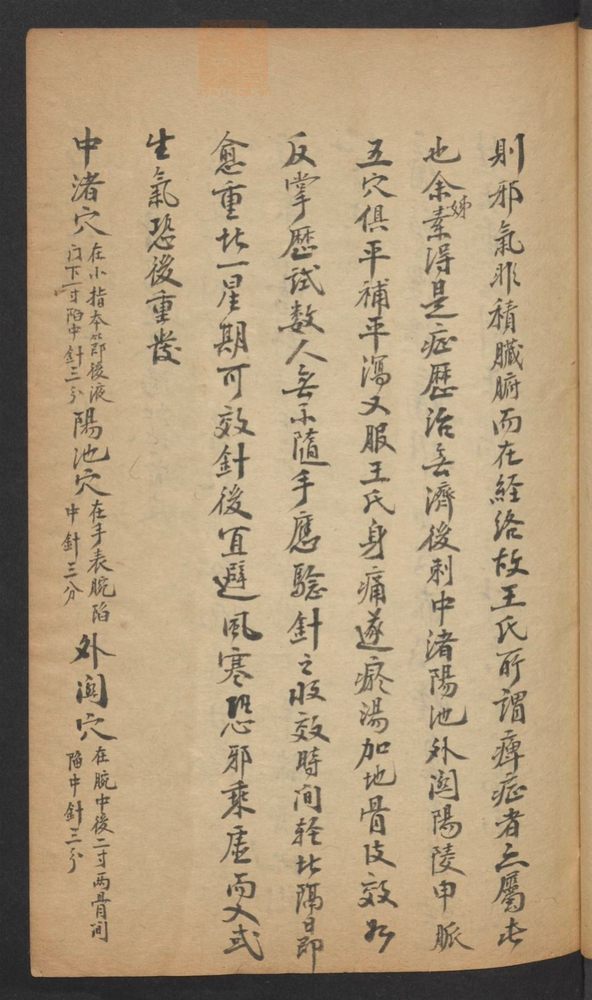 則邪氣非積臟腑而在経络故王氏所謂痺症者亦屬此
也余姊素得是症歷治無濟後刺中渚陽池外関陽陵申脈
五穴俱平補平瀉又服王氏身痛遂瘀湯加地骨皮效如
反掌歷試数人無不隨手應驗針之收效時间轻者隔日即
愈重者一星期可效針後宜避風寒恐邪乘虛而入或
生氣恐後重發
中渚穴在小指本節後液门下一寸陷中針三分陽池穴在手表腕陷中針三分外関穴在腕中後二寸两骨间陷中針三分